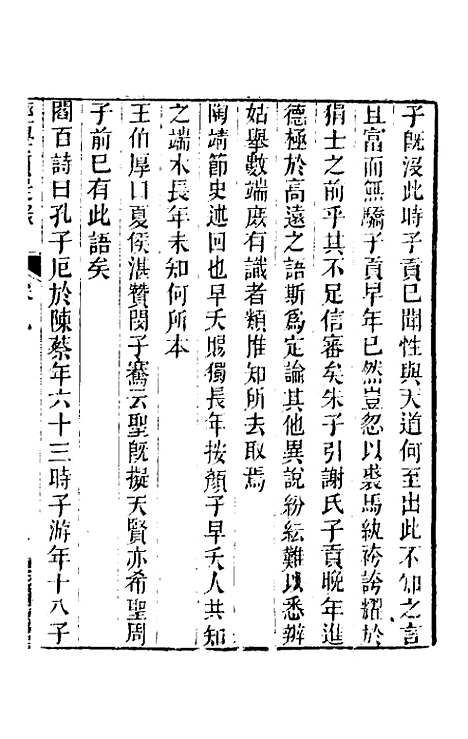 子旣没此時子貢已聞性與天道何至出此不知之言
且富而無驕子貢早年已然豈忽以裘馬紈袴誇耀於
狷士之前乎其不足信審矣朱子引謝氏子貢晚年進
德極於高遠之語斯爲定論其他異說紛紜難以悉辨
姑舉數端庶有識者類推知所去取焉
陶靖節史述回也早夭賜獨長年按顏子早夭人共知
之端木長年未知何所本
王伯厚曰夏侯湛贊閔子騫云聖旣擬天賢亦希聖周
子前已有此語矣
閻百詩曰孔子厄於陳蔡年六十三時子游年十八子